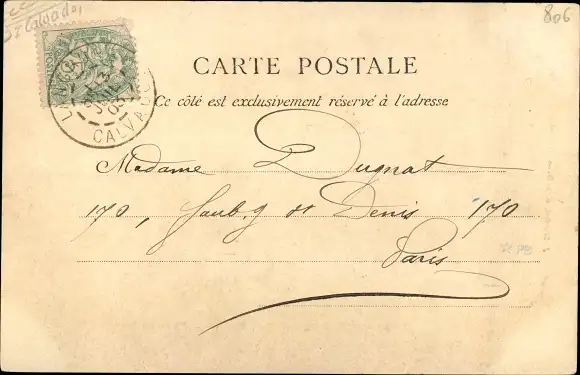 806
CARTE POSTALE
Ce côté est exclusivement réservé à l'adresse
CALVADOS
Madame Dugnat
170, Faub.g St Denis 170
Paris